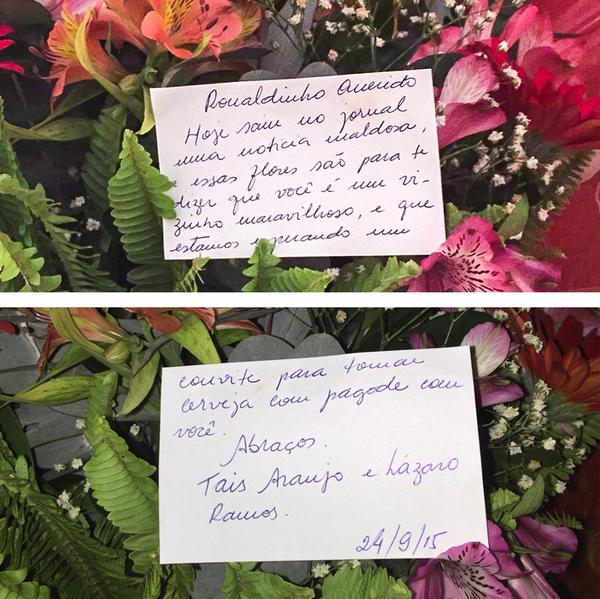 Ronaldinho Querido
Hoje saiu no jornal
uma notícia maldosa,
e essas flores são para te
dizer que você é um vi-
zinho maravilhoso, e que
estamos esperando um
convite para tomar
cerveja com pagode com
você.
Abraços.
Taís Araujo e Lázaro
Ramos.
24/9/15